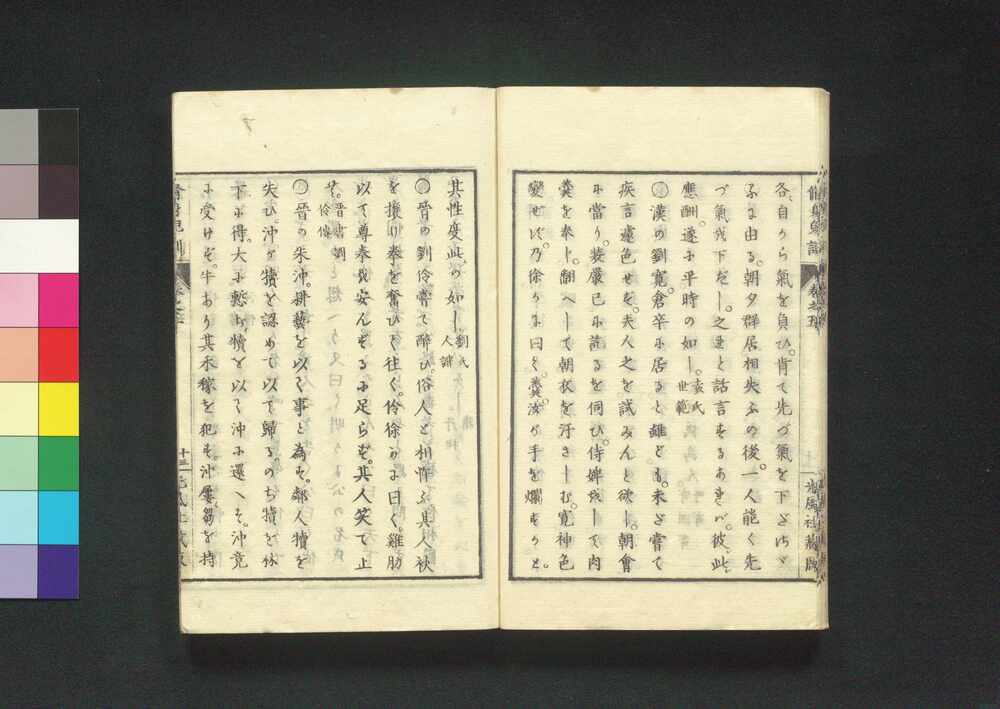 各自から氣を負ひ。肯て先づ氣を下ざる
に由る。朝夕群居相失ふの後。一人能く先
づ氣を下だし。之と話言するあれバ。彼此
應酬。遂に平時の如し。袁氏世範
〇漢の劉寛。倉卒に居ると雖ども。未ざ嘗て
疾言遽色せを。夫人之を試みんと欲し。朝會
に當り。装嚴已に訖るを伺ひ。侍婢をして肉
羹を奉し。翻へして朝衣を汙さしむ。寛神色
變せず。乃徐かに曰く。羹汝が手を爛すかと。
其性度此の如し。劉氏人譜
〇晉の劉伶嘗て醉ひ。俗人と相忤ふ。其人袂
を攘り拳を奮ひて往く。伶徐かに曰く。雞肋
以て尊拳を安んするに足らず。其人笑て止
む。晋書劉伶傳
〇晉の朱沖。耕藝を以て事と為す。鄰人犢を
失ひ。沖が犢を認めて以て歸る。のち犢を林
下に得。大に慙ぢ。犢を以て沖に還へす。沖竟
に受けず。牛あり其禾稼を犯す。沖屢芻を持
十三